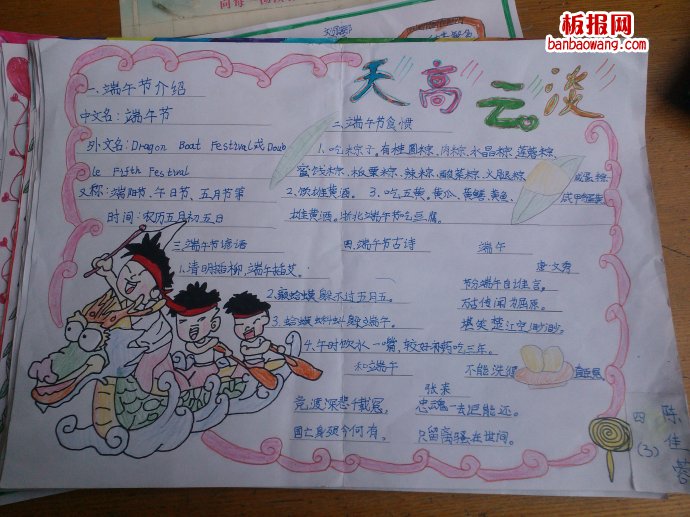 板报网
banbaowang.com
天高云淡
一.端午节介绍
中文名:端午节
外文名:Dragon Boat Festival或Doub
le Fifth Festival
又称:端阳节、午日节、五月节等
时间:农历五月初五日
二.端午节食惯
1.吃粽子.有桂圆粽、肉粽、水晶粽、莲蓉粽、
蜜饯粽、板栗粽、辣粽、酸菜粽、火腿粽、
咸蛋粽
2.饮雄黄酒。3.吃五黄。黄瓜、黄鳝、黄鱼、
咸鸭蛋黄
雄黄酒。浙北端午节吃豆腐。
三.端午节谚语
1.清明插柳,端午插艾。
2.癞蛤蟆躲不过五月五。
3.蛤蟆蝌蚪躲端午。
4.午时饮水一嘴,较好补药吃三年。
四.端午节古诗
端午
唐·文秀
节分端午自谁言,
万古传闻为屈原。
堪笑楚江空渺渺,
不能洗得
直臣冤
和端午
张耒
竞渡深悲千载冤,
忠魂一去讵能还。
国亡身殒今何有,
只留离骚在世间。
四
(3)
陈佳